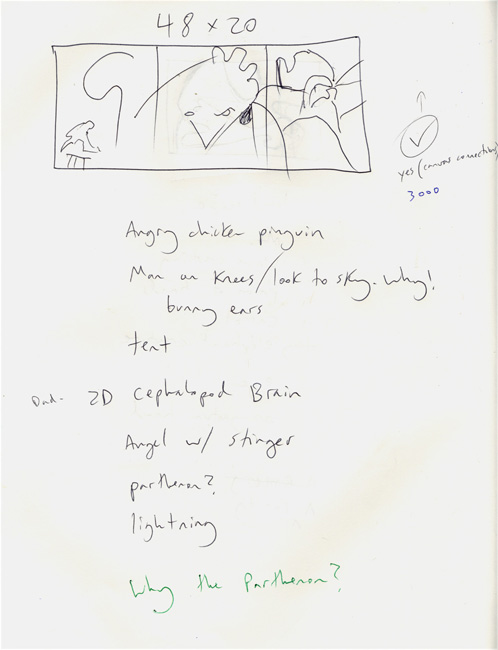 48 x 20
yes (canvas connectibility)
3000
Angry chicken pinguin
Man on knees/look to sky. Why!
bunny ears
tent
2D Cephalopod Brain
Angel w/ stinger
parthenon?
lightning
Why the Parthenon?